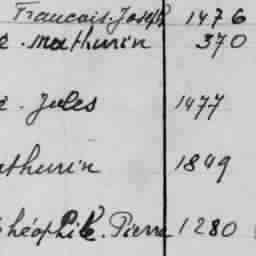 Francois. Joseph 1476
e. Mathurin 370
e. Jules 1477
athurin 1849
Théophile. Pierre 1280